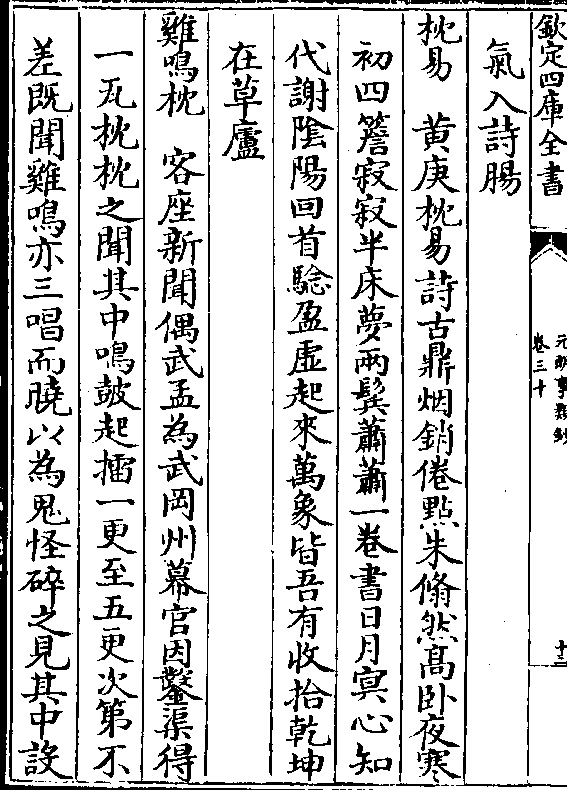 欽定四庫全書
元明事類鈔
卷三十
十二
氣入詩腸
枕易　黄庚枕易詩古鼎烟銷倦點朱翛然髙卧夜寒
初四簷寂寂半床夢兩鬂蕭蕭一巻書日月冥心知
代謝陰陽回首騐盈虚起來萬象皆吾有收拾乾坤
在草廬
雞鳴枕　客座新聞偶武孟為武岡州幕官因鑿渠得
一瓦枕枕之聞其中鳴皷起擂一更至五更次第不
差既聞雞鳴亦三唱而曉以為鬼怪碎之見其中設